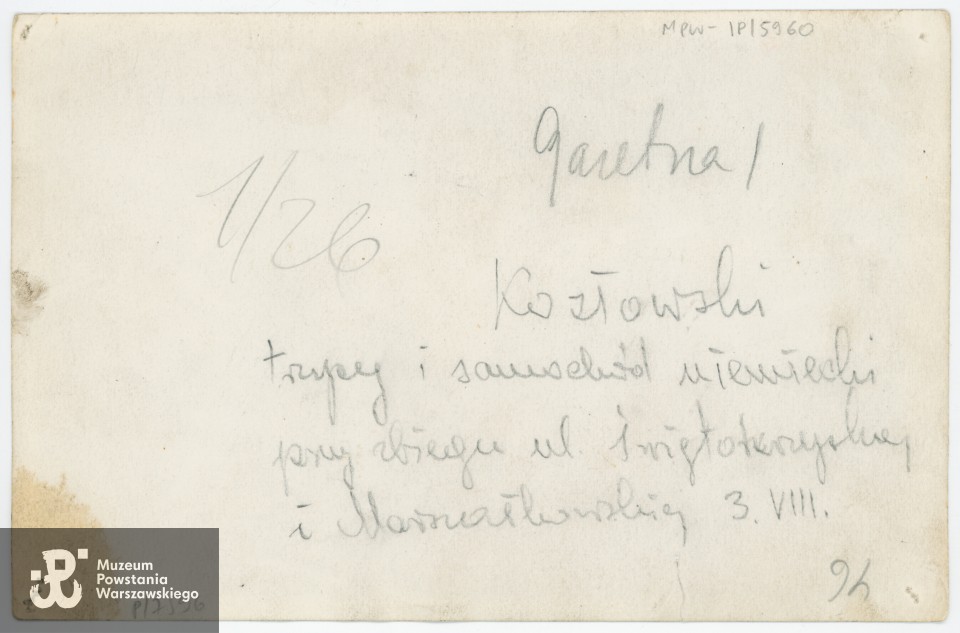 MPW-IP/5960
Gazetna 1
1/26
Kozłowski
trupy i samochód niemiecki
przy zbiegu ul. Świętokrzyskiej
i Marszałkowskiej 3. VIII.
94
Muzeum
Powstania
Warszawskiego